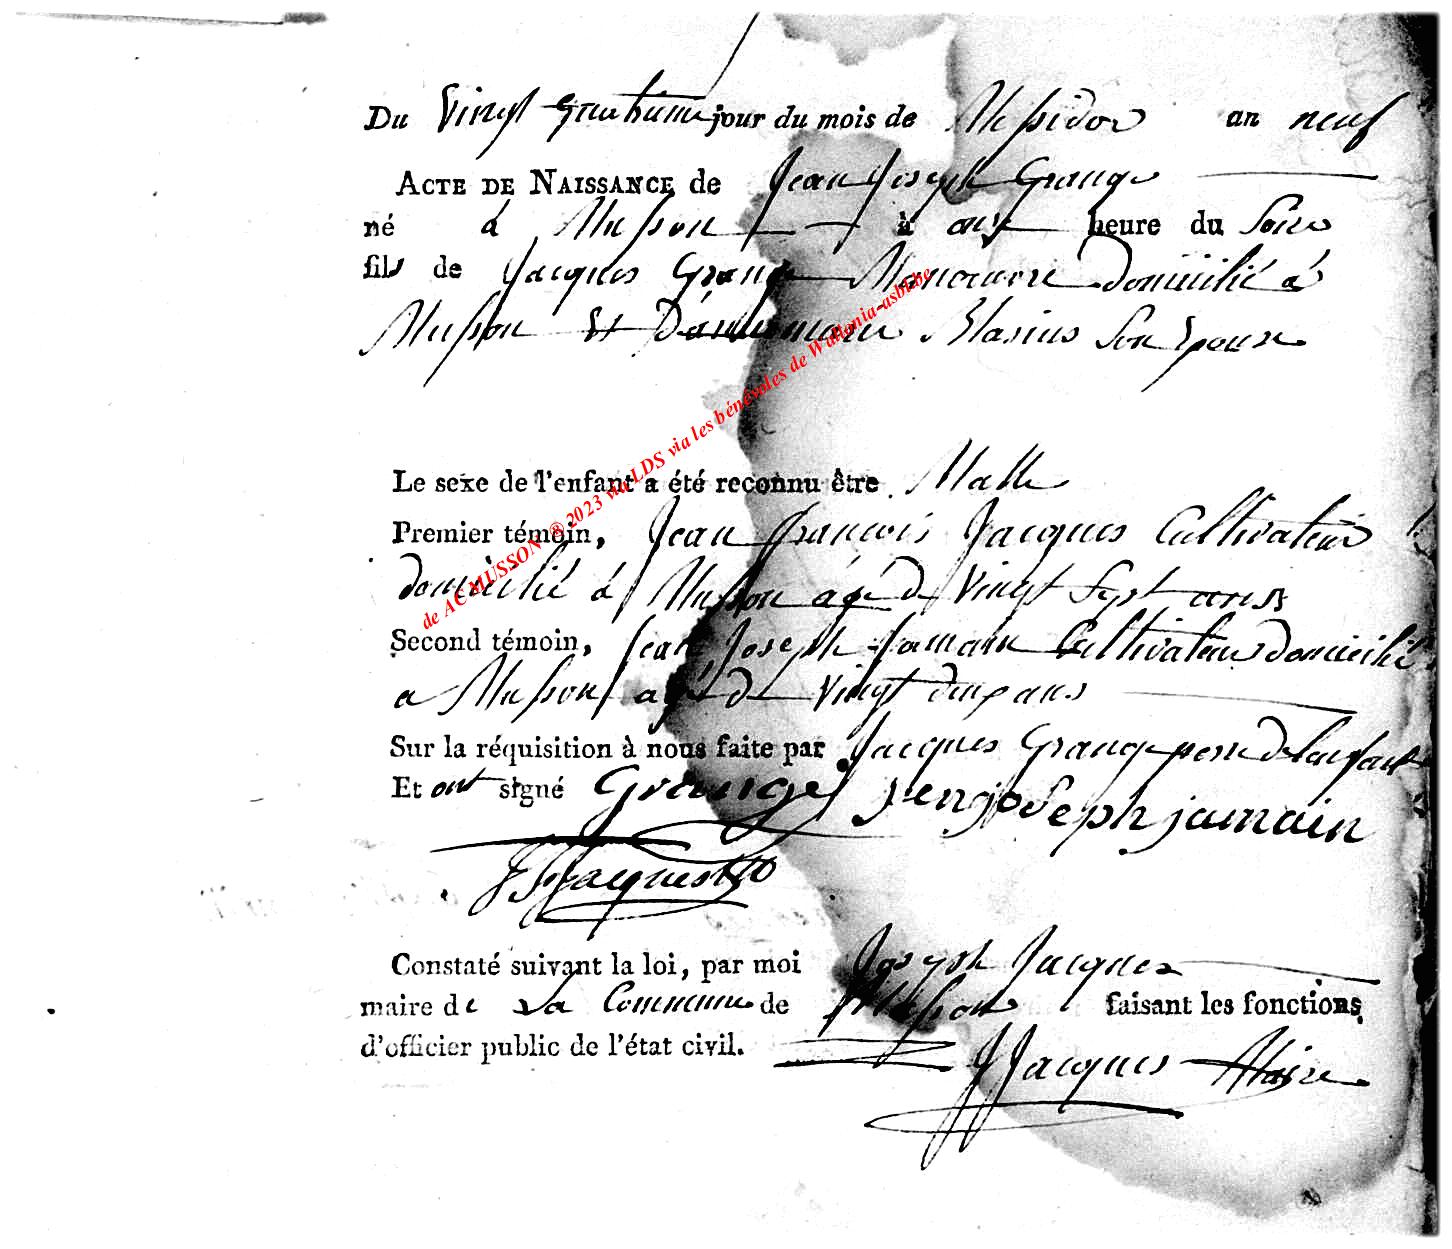 Du Vingt quatrieme jour du mois de Messidor an neuf
ACTE DE NAISSANCE de Jean Joseph Grange
né à Musson à onze heure du Soire
fils de Jacques Grange Manoeuvre domicilié à
Musson Et Blasius Son Epouse
Le sexe de l'enfant a été reconnu être Malle
Premier témoin, Jean francois Jacques Cultivateur
domicilié à Musson agé De Vingt Sept ans
Second témoin, Jean Joseph Jamain Cultivateur domicilié
a Musson agé de Vingt ans
Sur la réquisition à nous faite par Jacques Grange pere De lenfant
Et ont signé Grange jenjoseph jamain
JfJacques
Constaté suivant la loi, par moi Joseph Jacques
maire de La Commune de Musson faisant les fonctions
d'officier public de l'état civil.
JJacques Maire
de AC MUSSON ® 2023 via LDS via les bénévoles de Wallonia-asbl.be